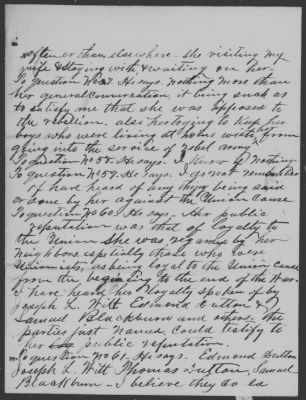 oftener than elsewhere - she visiting my
wife & staying with & waiting on her.
To question No 57. He says. nothing more than
her general conversation, it being such as
to satisfy me that she was opposed to
the rebellion. also her trying to keep her
boys who were living at home with her from
going into the service of rebel army
To question No 58. He says. I know of nothing
To question No 59. He says. I do not remember
of hard heard of any thing being said
or done by her against the Union cause
To question No 60. He says. Her public
reputation was that of loyalty to
the Union She was regarded by her
neighbors especially those who were
Unionists, as being loyal to the Union cause
from the beginning to the end of the War.
I have heard her loyalty spoken of by
Joseph L. Witt Edmond Dutton &
Samuel Blackburn and others. the
parties just named, could testify to
her public reputation.
To question No 61. He says. Edmond Dutton
Joseph L. Witt Thomas Dutton, Samuel
Blackburn - I believe they do as